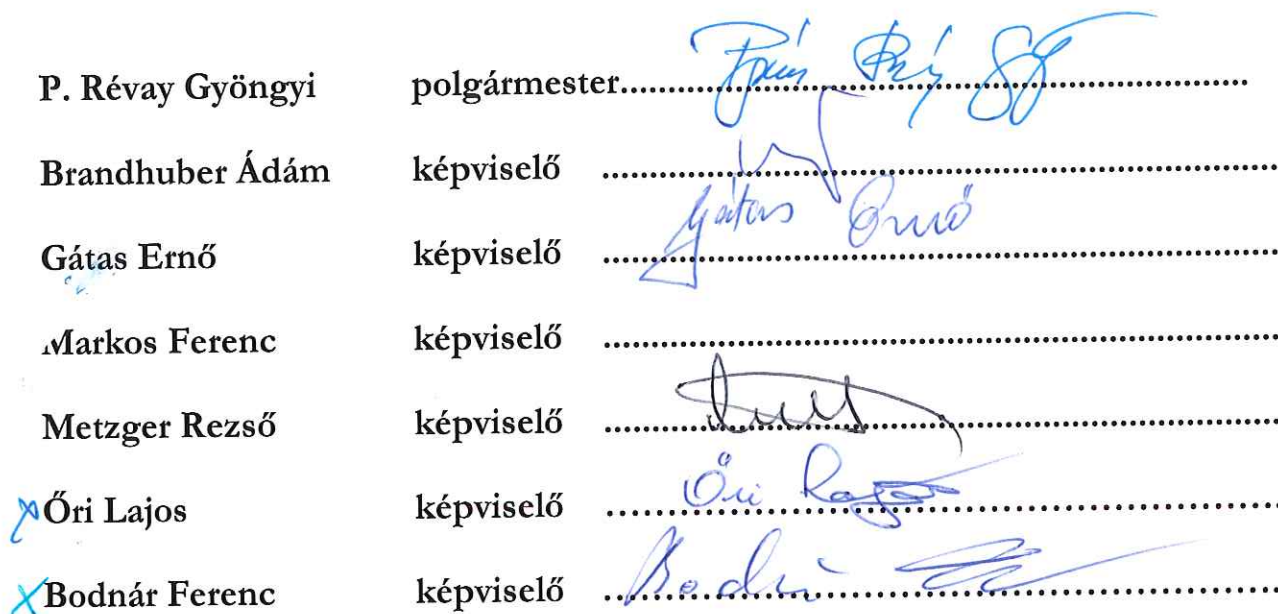 P. Révay Gyöngyi polgármester..........
Brandhuber Ádám képviselő ..........
Gátas Ernő képviselő .......... Gátas Ernő
Markos Ferenc képviselő ..........
Metzger Rezső képviselő ..........
Őri Lajos képviselő .......... Őri Lajos
Bodnár Ferenc képviselő ..........